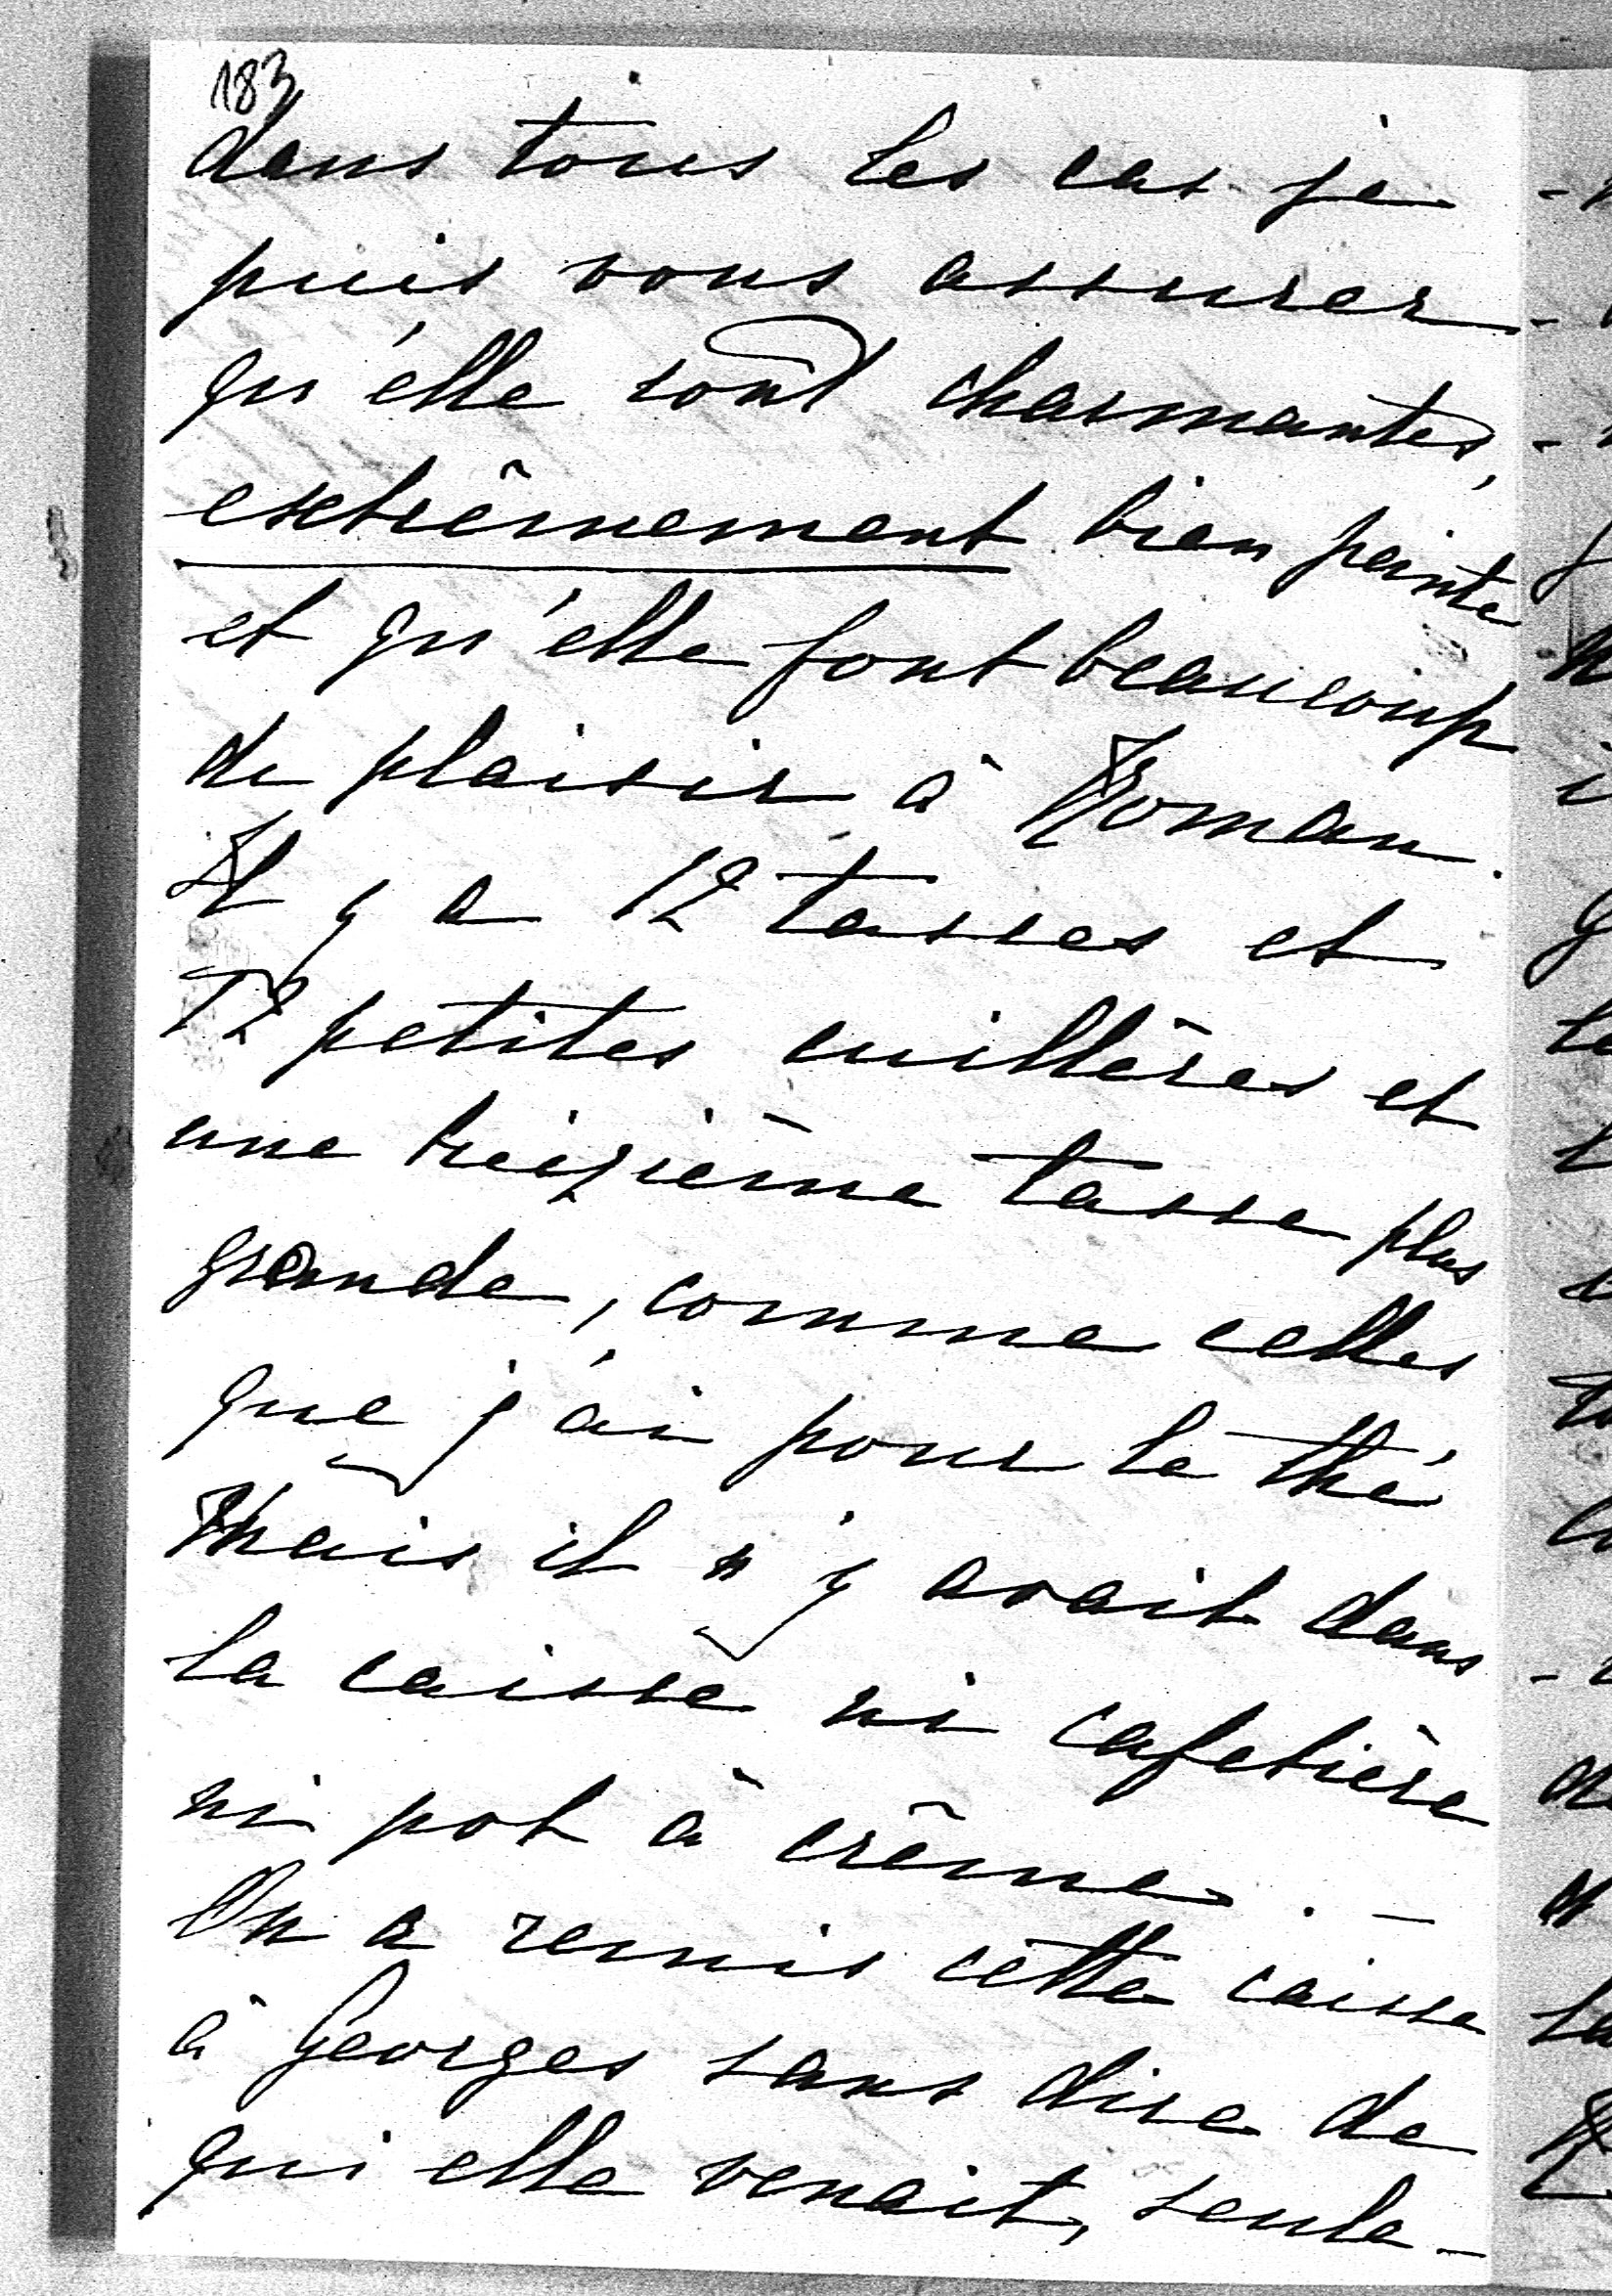 183
dans tous les cas je
puis vous assurer
qu'elle sont charmantes,
extrêmement bien peinte
et qu'elle font beaucoup
de plaisir à Roman.
Il y a 12 tasses et
12 petites cuillères et
une treizième tasse plus
grande, comme celles
que j'ai pour le thé
Mais il n'y avait dans
la caisse ni cafetière
ni pot à crème. —
On a remis cette caisse
à Georges sans dire de
qui elle venait, seule-